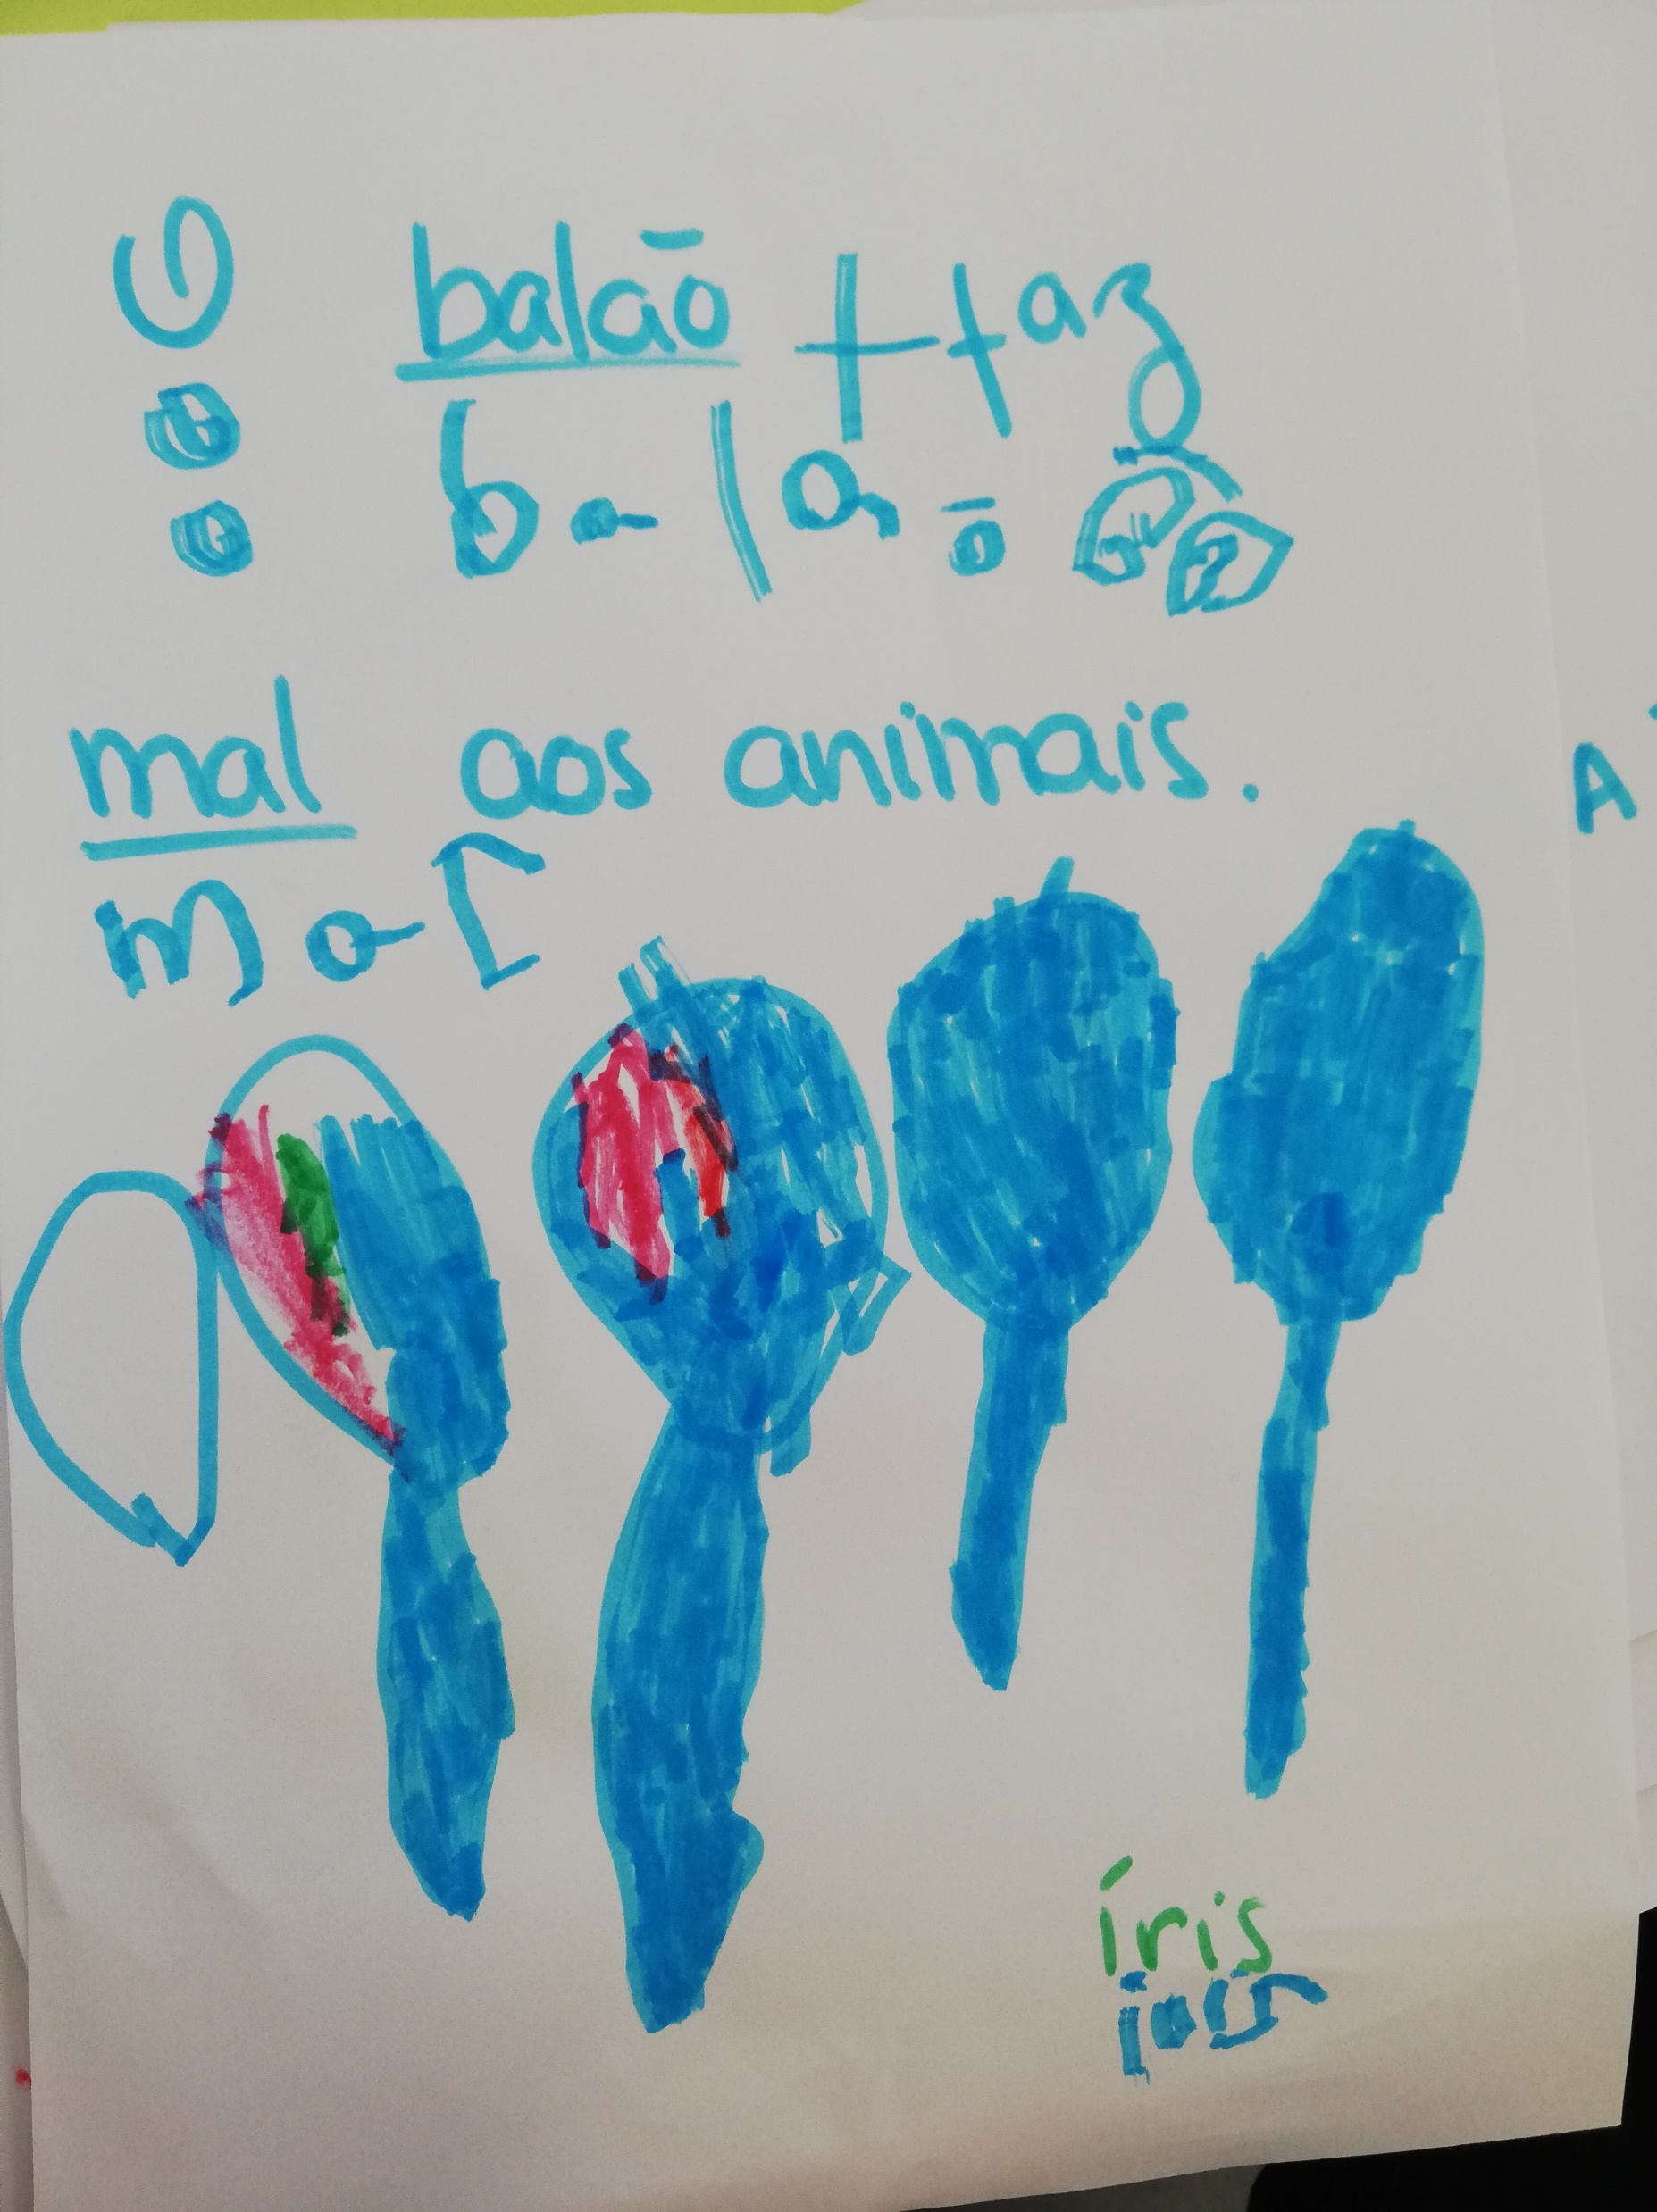 O balão faz
o b a l a õ
o
mal aos animais.
m a l
A
íris